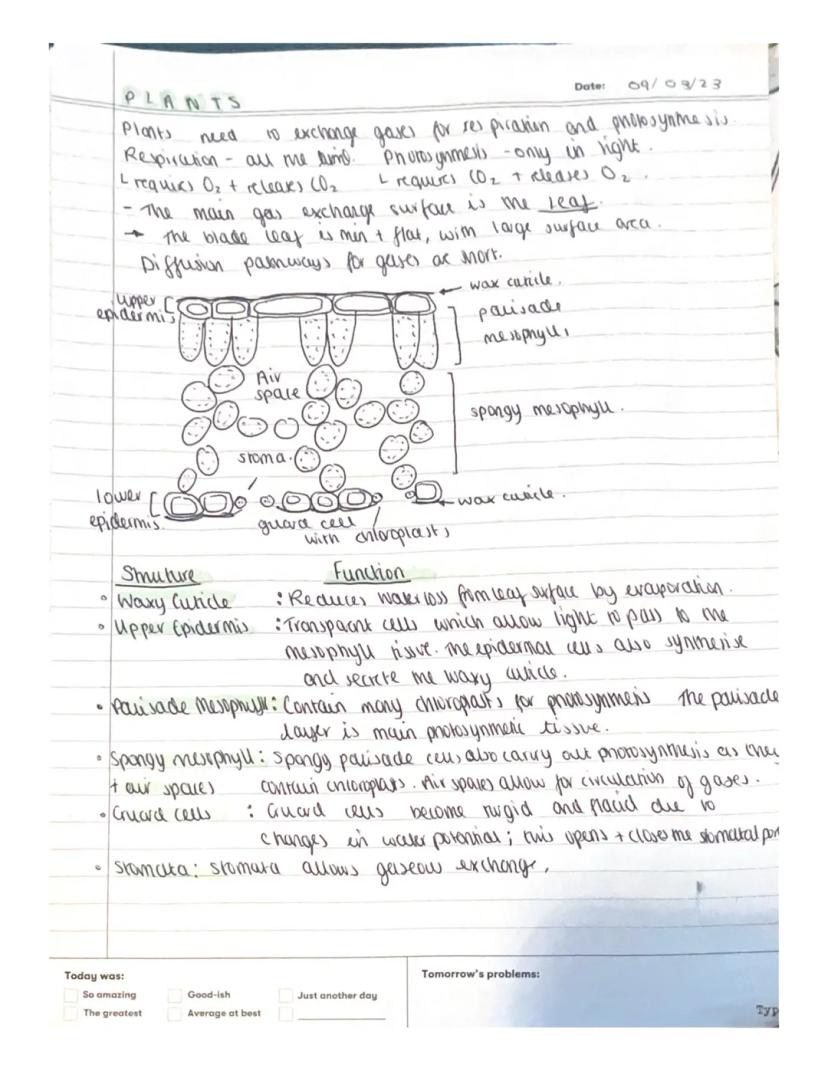 PLANTS
Date: 09/03/23
Plants need to exchange gases for respiration and photosynthesis.
Respiration - all the time. Photosynthesis - only in light.
requires O2 + releases CO2 requires CO2 + releases O2.
- The main gas exchange surface is the Leaf.
→ The blade leaf is thin + flat, with large surface area.
Diffusion pathways for gases are short.
wax cuticle.
upper
epidermis
palisade
mesophyll
Air
space
spongy mesophyll.
stoma.
lower
epidermis.
wax cuticle.
guard cell
with chloroplasts
Structure Function
• Waxy Cuticle : Reduces water loss from leaf surface by evaporation.
• Upper Epidermis : Transparent cells which allow light to pass to the
mesophyll tissue. The epidermal cells also synthesise
and secrete the waxy cuticle.
• Palisade Mesophyll: Contain many chloroplasts for photosynthesis The palisade
layer is main photosynthetic tissue.
• Spongy mesophyll: Spongy palisade cells also carry out photosynthesis as they
+ air spaces contain chloroplasts. Air spaces allow for circulation of gases.
• Guard cells : Guard cells become turgid and flacid due to
changes in water potential; this opens + closes the stomatal
• Stomata: stomata allows gaseous exchange.
Today was:
So amazing Good-ish Just another day
The greatest Average at best
Tomorrow's problems:
Typ